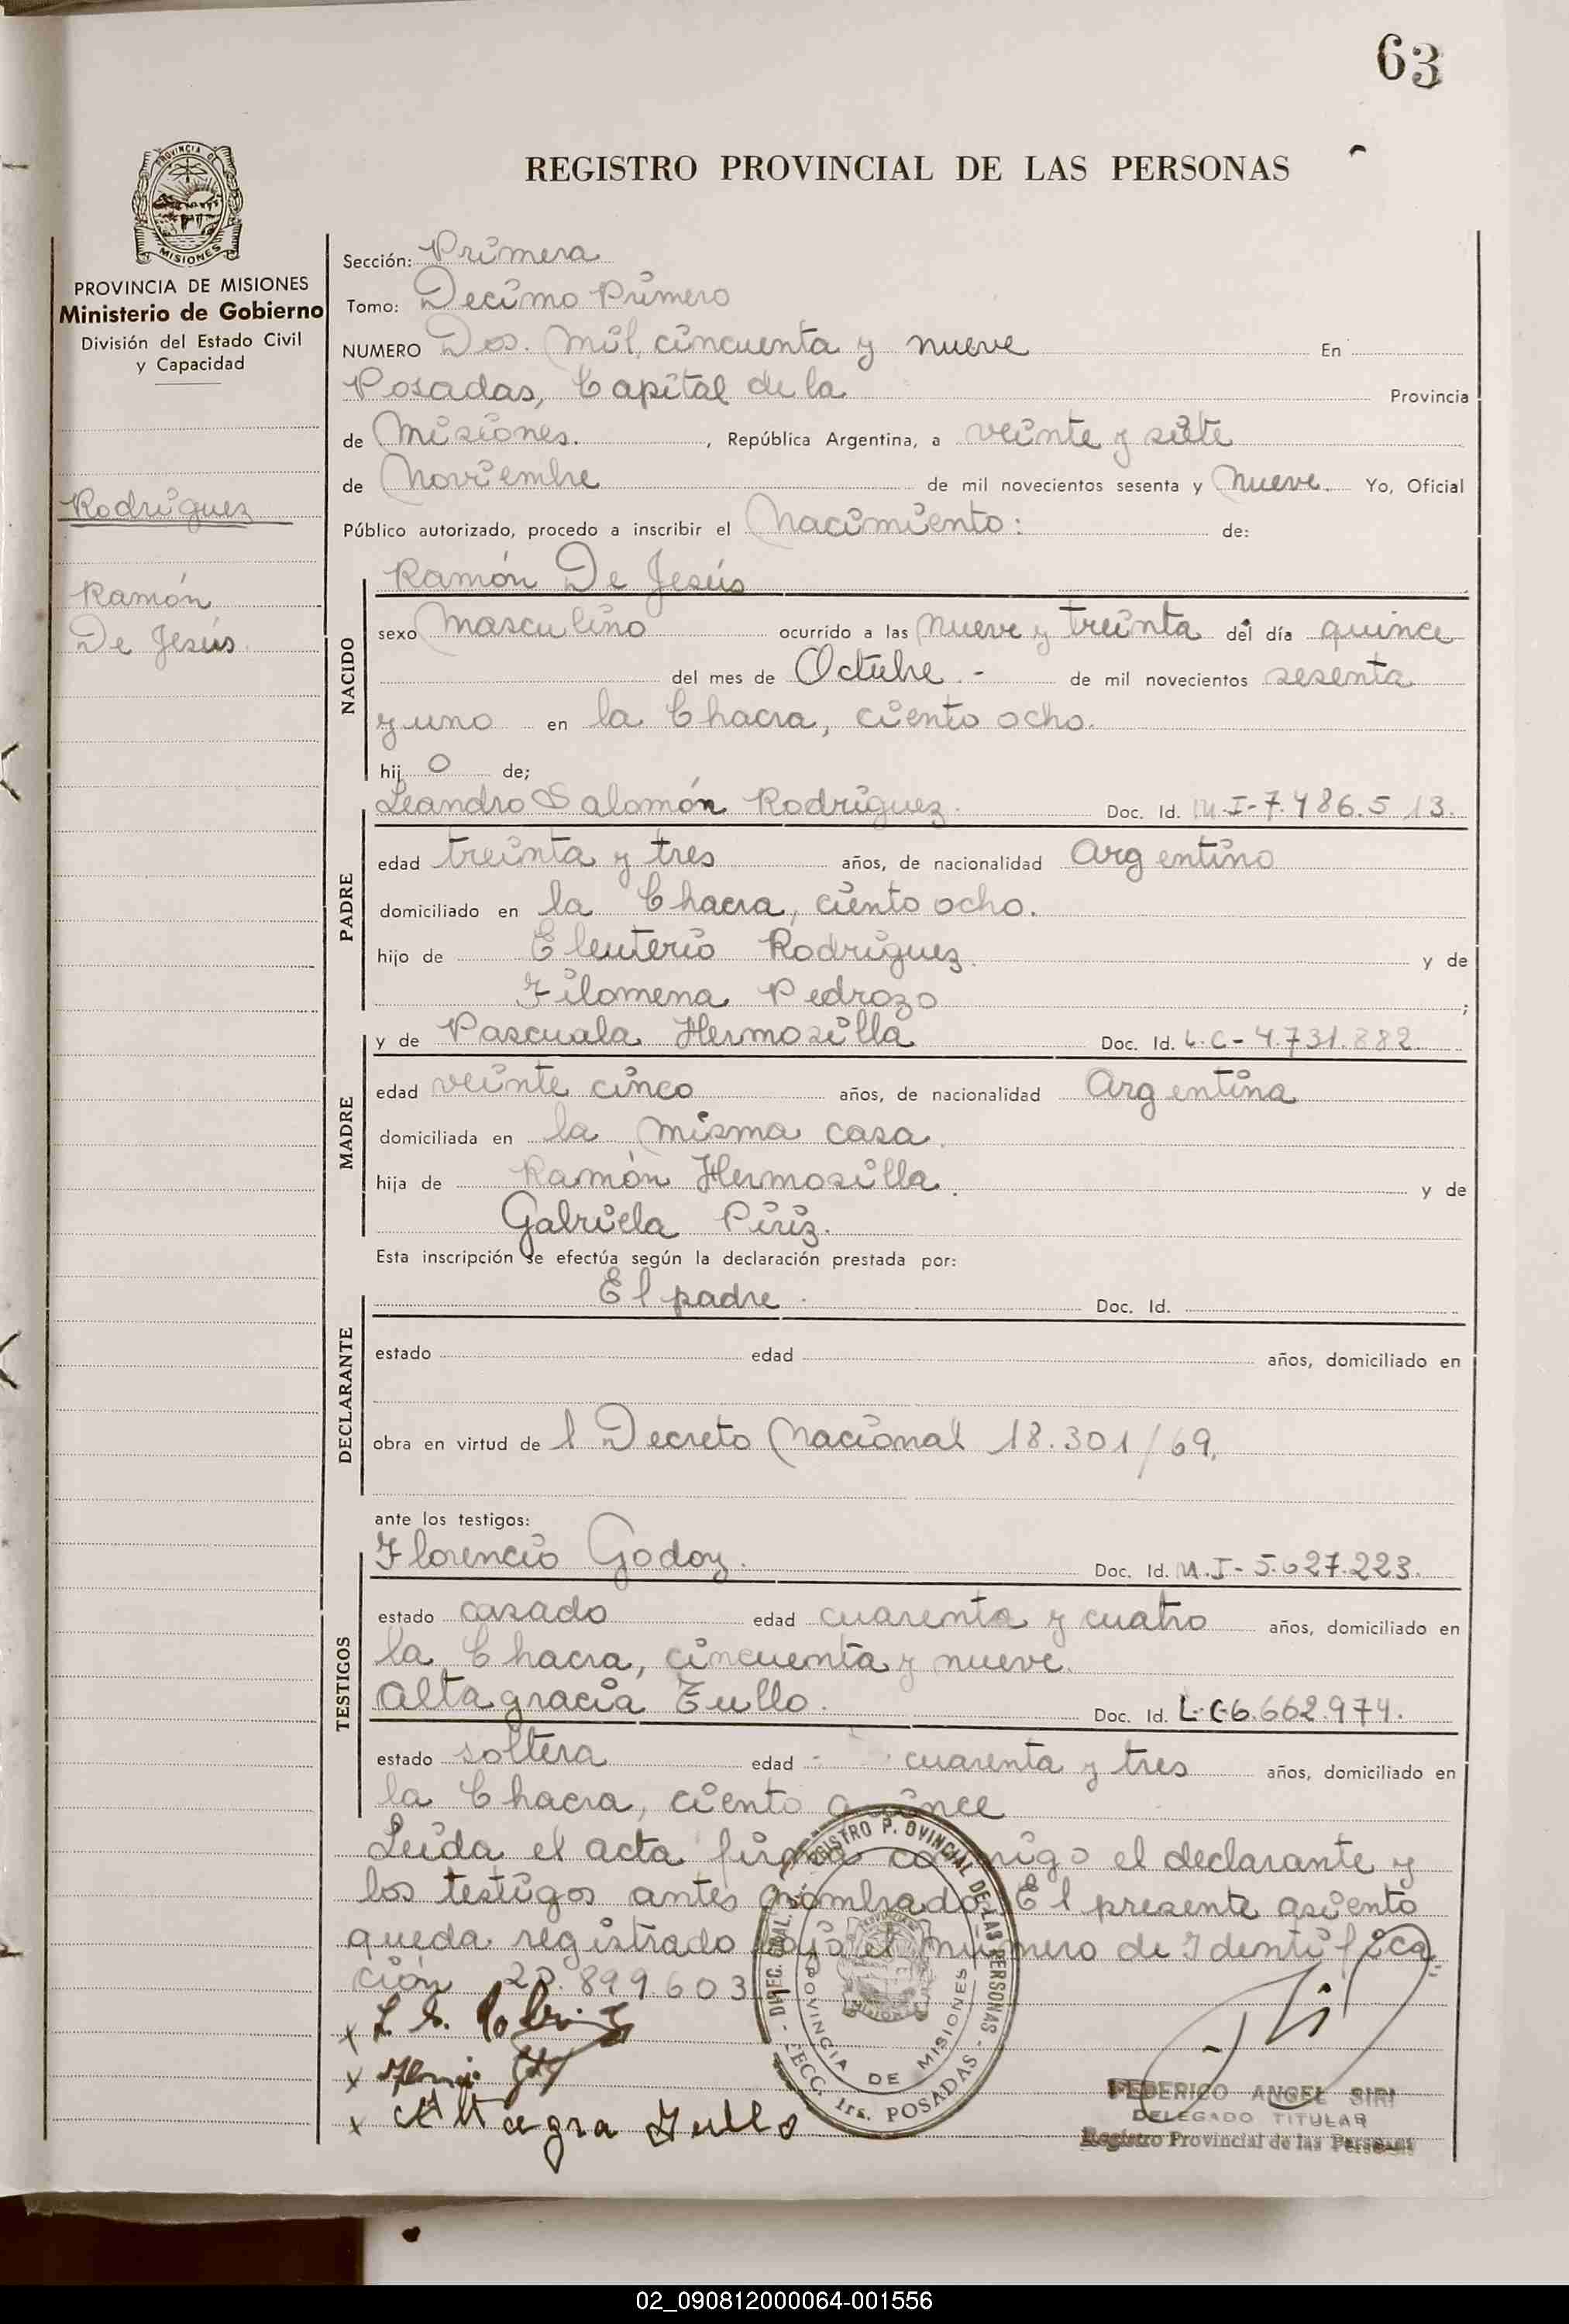 63
REGISTRO PROVINCIAL DE LAS PERSONAS
PROVINCIA DE MISIONES
PROVINCIA DE MISIONES
Ministerio de Gobierno
División del Estado Civil
y Capacidad
Rodríguez
Ramón
De Jesús.
Sección: Primera
Tomo: Decimo Primero
NUMERO Dos. mil, cincuenta y nueve En
Posadas, Capital de la Provincia
de Misiones. , República Argentina, a veinte y siete
de Noviembre de mil novecientos sesenta y nueve. Yo, Oficial
Público autorizado, procedo a inscribir el Nacimiento: de:
NACIDO
Ramón De Jesús
sexo Masculino ocurrido a las nueve y treinta del día quince
del mes de Octubre.- de mil novecientos sesenta
y uno en la Chacra, ciento ocho.
hij o de;
PADRE
Leandro Salomón Rodríguez. Doc. Id. M.I-7.486.513.
edad treinta y tres años, de nacionalidad Argentino
domiciliado en la Chacra, ciento ocho.
hijo de Eleuterio Rodríguez. y de
Filomena Pedrozo ;
MADRE
y de Pascuala Hermosilla Doc. Id. L.C-4.731.882.
edad veinte cinco años, de nacionalidad Argentina
domiciliada en la misma casa.
hija de Ramón Hermosilla. y de
Gabriela Píriz.
Esta inscripción se efectúa según la declaración prestada por:
DECLARANTE
El padre. Doc. Id.
estado edad años, domiciliado en
obra en virtud de l Decreto Nacional 18.301/69.
ante los testigos:
TESTIGOS
Florencio Godoy. Doc. Id. M.I-5.627.223.
estado casado edad cuarenta y cuatro años, domiciliado en
la Chacra, cincuenta y nueve.
Altagracia Tullo. Doc. Id. L.C-6.662.974.
estado soltera edad cuarenta y tres años, domiciliado en
la Chacra, ciento quince
Leida el acta firma conmigo el declarante y
los testigos antes nombrados. El presente asiento
queda registrado bajo el numero de Identifica
ción 20.899.603
DIREC. GRAL. REGISTRO PROVINCIAL DE LAS PERSONAS - SECC. 1ra. POSADAS -
PROVINCIA DE MISIONES
x L. S.
x
x Altagra Tullo
FEDERICO ANGEL SIRI
DELEGADO TITULAR
Registro Provincial de las Personas
02_090812000064-001556